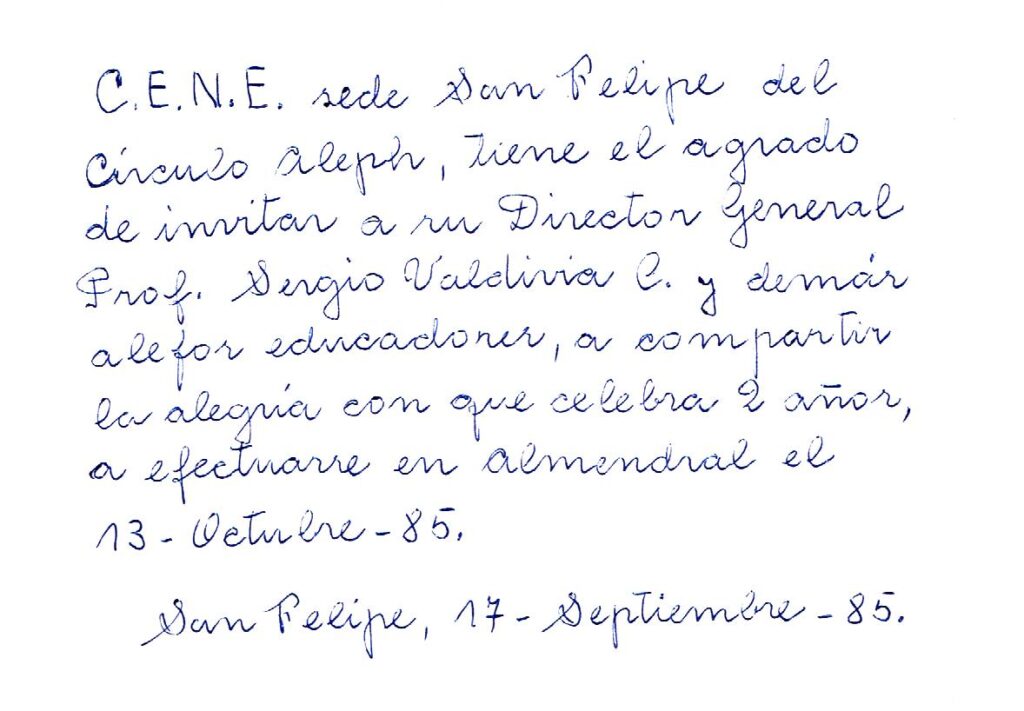 C.E.N.E. sede San Felipe del
Círculo Aleph, tiene el agrado
de invitar a su Director General
Prof. Sergio Valdivia C. y demás
alefos educadores, a compartir
la alegría con que celebra 2 años,
a efectuarse en Almendral el
13-Octubre-85.
San Felipe, 17-Septiembre-85.